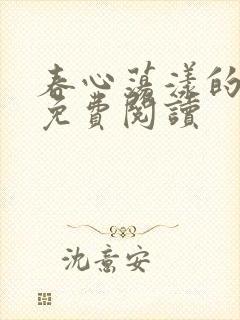 春心蕩漾的
免費閱讀
沈意安